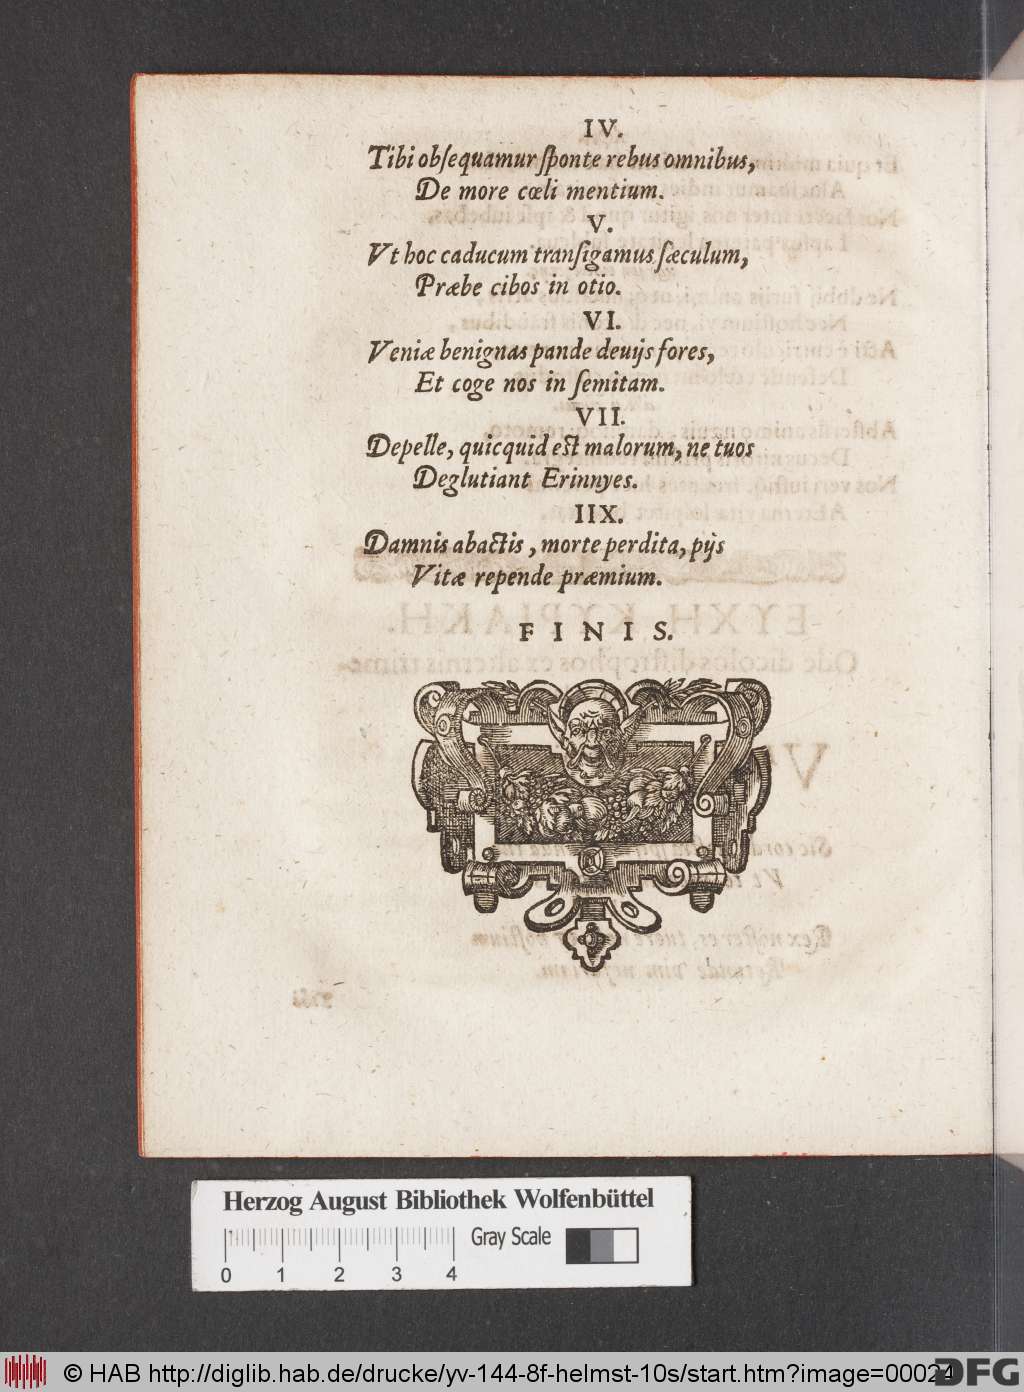 IV.
Tibi obſequamur ſponte rebus omnibus,
De more cœli mentium.
V.
Vt hoc caducum tranſigamus ſæculum,
Præbe cibos in otio.
VI.
Veniæ benignas pande devijs fores,
Et coge nos in ſemitam.
VII.
Depelle, quicquid est malorum, ne tuos
Deglutiant Erinnyes.
IIX.
Damnis abactis, morte perdita, pijs
Vitæ repende præmium.
FINIS.
Herzog August Bibliothek Wolfenbüttel
Gray Scale
0 1 2 3 4
© HAB http://diglib.hab.de/drucke/yv-144-8f-helmst-10s/start.htm?image=00024
DFG